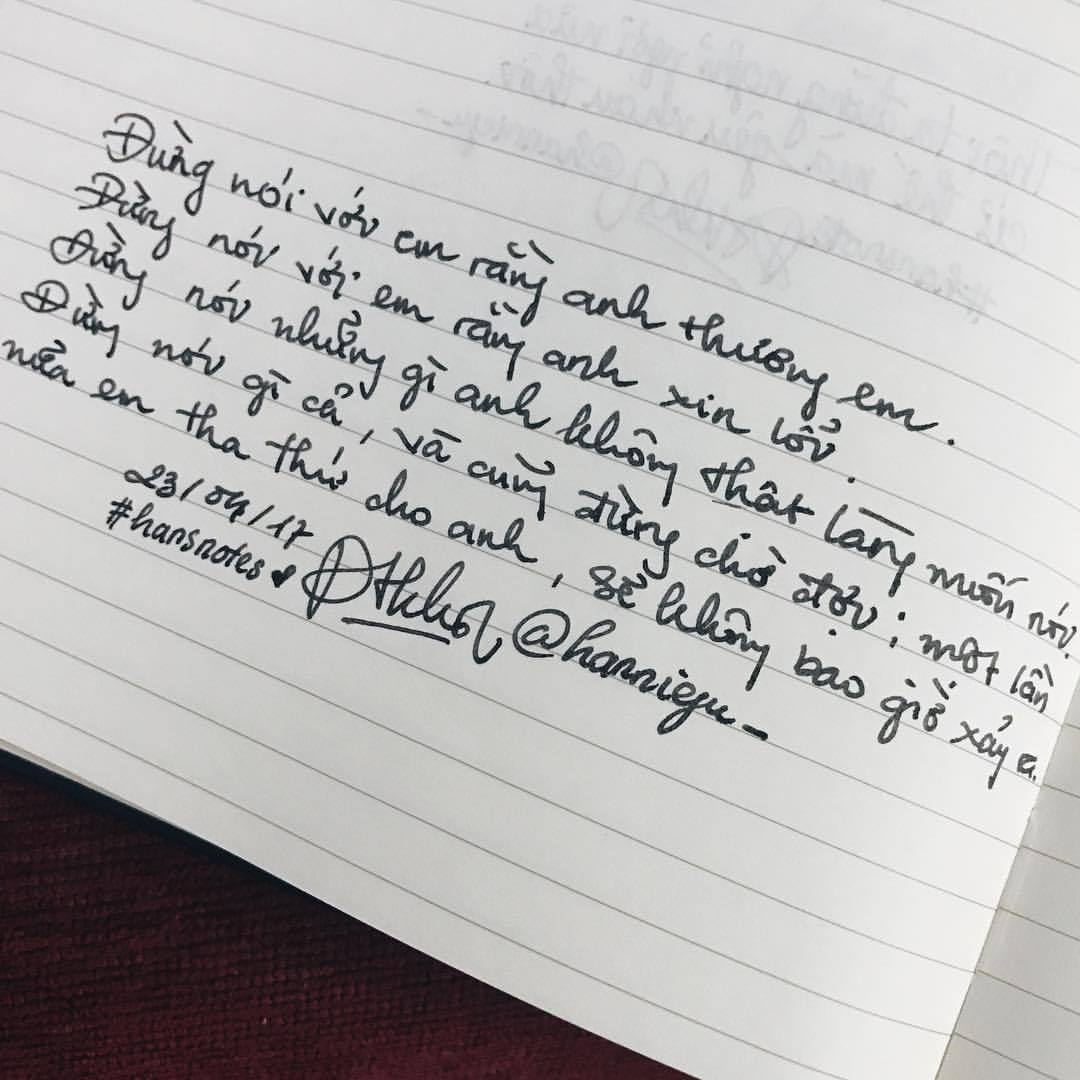 Đừng nói với em rằng anh thương em.
Đừng nói với em rằng anh xin lỗi.
Đừng nói những gì anh không thật lòng muốn nói.
Đừng nói gì cả, và cũng đừng chờ đợi; một lần
nữa em tha thứ cho anh, sẽ không bao giờ xảy ra.
23/04/17
#hansnotes ♥ @hannieyu_